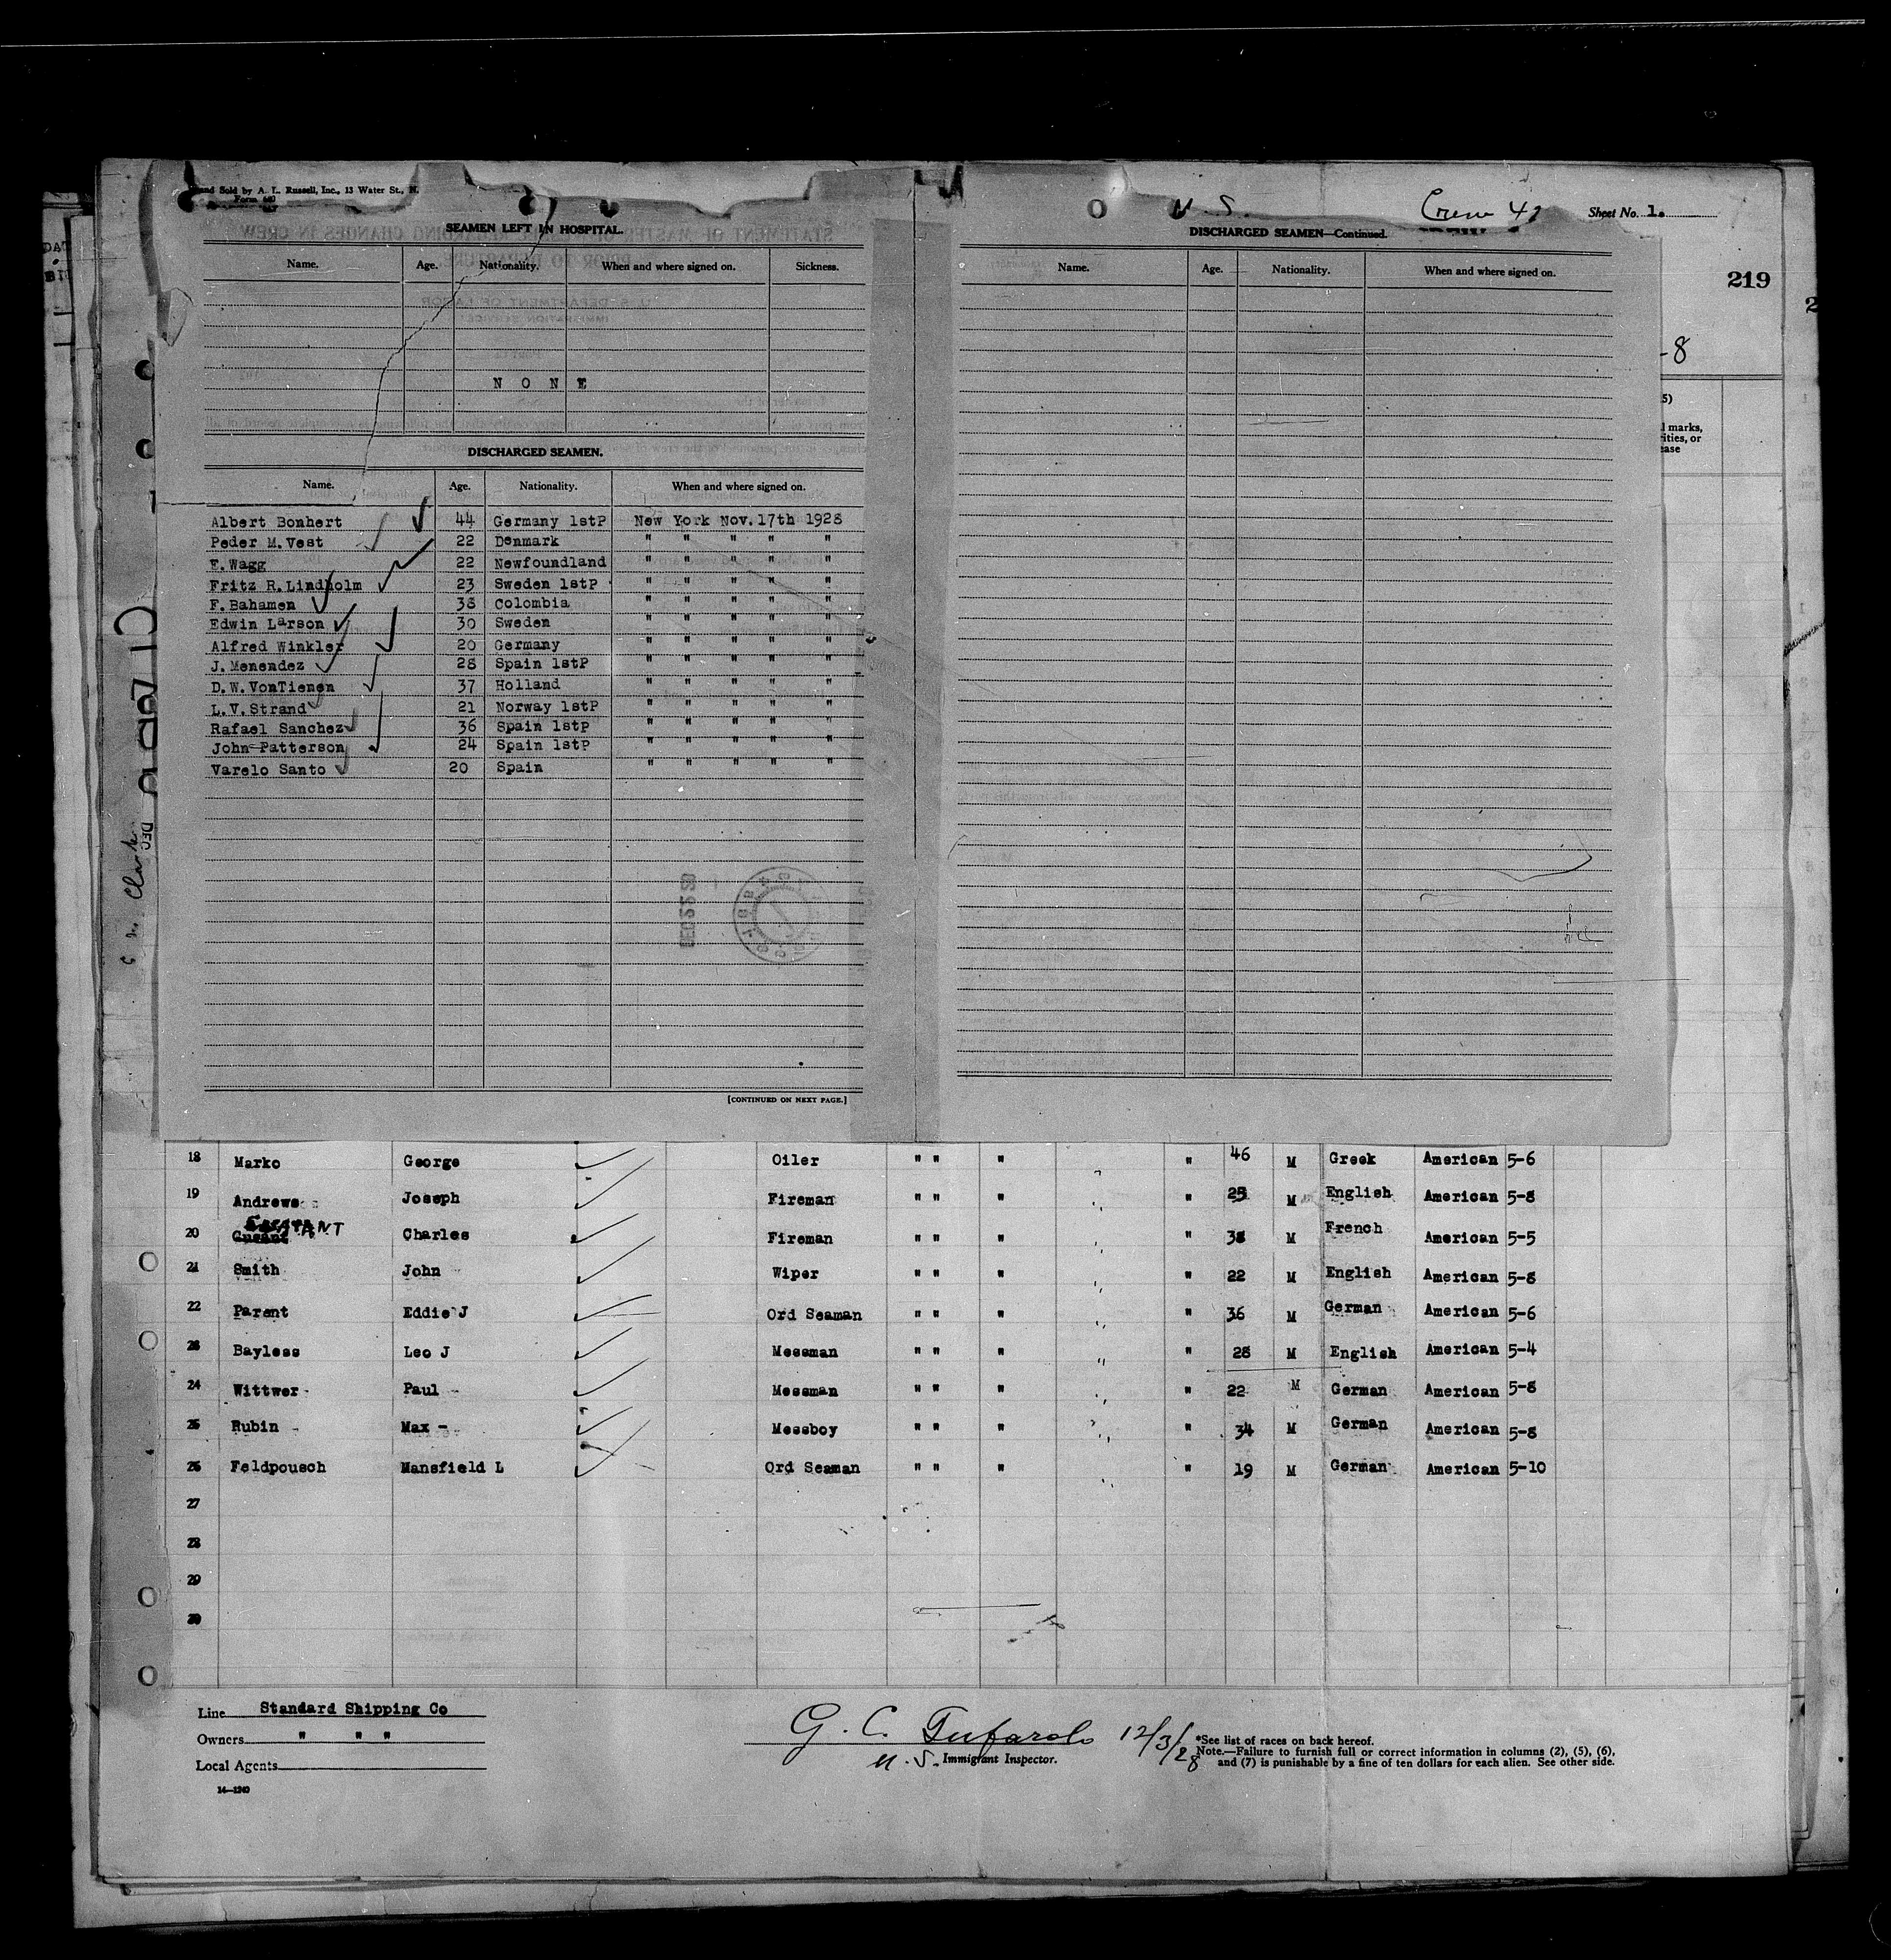 and Sold by A. L. Russell, Inc., 13 Water St., N.
Form 680
SEAMEN LEFT IN HOSPITAL.
Name. Age. Nationality. When and where signed on. Sickness.
N O N E
DISCHARGED SEAMEN.
Name. Age. Nationality. When and where signed on.
Albert Bonhert 44 Germany 1stP New York Nov. 17th 1928
Peder M. Vest 22 Denmark " " " " "
E. Wagg 22 Newfoundland " " " " "
Fritz R. Lindholm 23 Sweden 1stP " " " " "
F. Bahamen 38 Colombia " " " " "
Edwin Larson 30 Sweden " " " " "
Alfred Winkler 20 Germany " " " " "
J. Menendez 28 Spain 1stP " " " " "
D. W. VonTienen 37 Holland " " " " "
L. V. Strand 21 Norway 1stP " " " " "
Rafael Sanchez 36 Spain 1stP " " " " "
John Patterson 24 Spain 1stP " " " " "
Varelo Santo 20 Spain " " " " "
[CONTINUED ON NEXT PAGE.]
U. S. Crew 42 Sheet No. 1.
DISCHARGED SEAMEN—Continued.
Name. Age. Nationality. When and where signed on.
219
-8
5)
l marks,
rities, or
ease
DEC
Clark
18 Marko George Oiler " " " " 46 M Greek American 5-6
19 Andrews Joseph Fireman " " " " 25 M English American 5-8
20 Charles Fireman " " " " 38 M French American 5-5
21 Smith John Wiper " " " " 22 M English American 5-8
22 Parent Eddie J Ord Seaman " " " " 36 M German American 5-6
23 Bayless Leo J Messman " " " " 28 M English American 5-4
24 Wittwer Paul Messman " " " " 22 M German American 5-8
25 Rubin Max - Messboy " " " " 34 M German American 5-8
26 Feldpousch Mansfield L Ord Seaman " " " " 19 M German American 5-10
27
28
29
30
Line Standard Shipping Co
Owners " " "
Local Agents
14—1240
G. C. Tufarolo 12/3/28
U. S. Immigrant Inspector.
*See list of races on back hereof.
Note.—Failure to furnish full or correct information in columns (2), (5), (6),
and (7) is punishable by a fine of ten dollars for each alien. See other side.